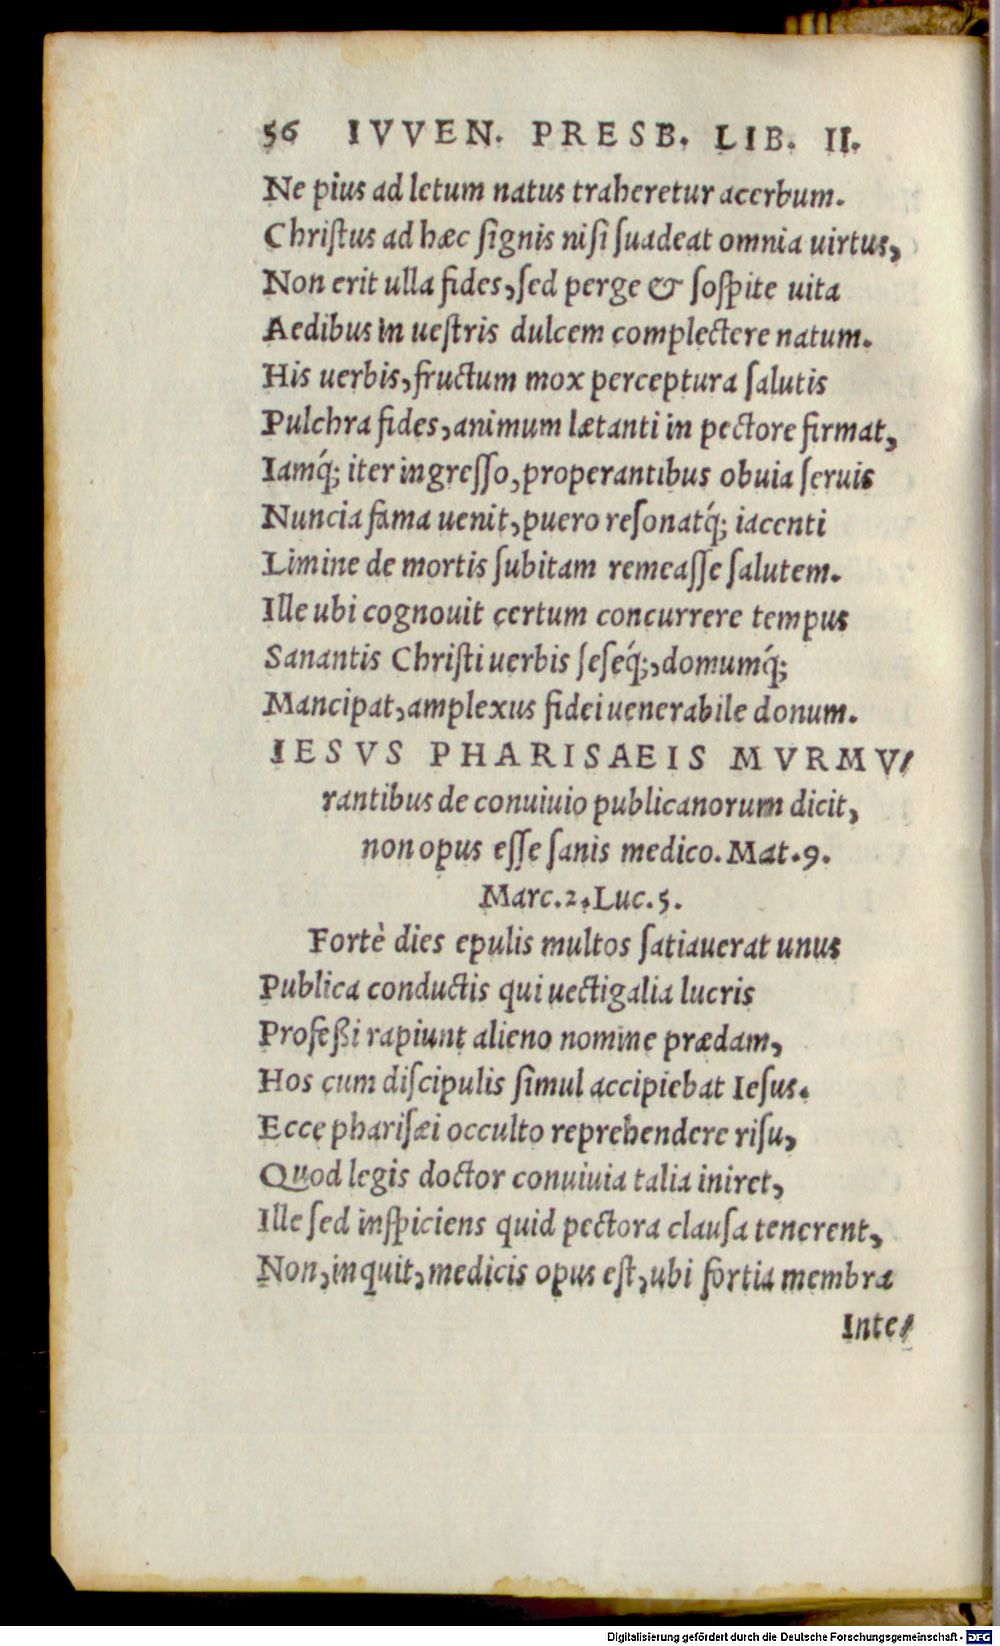 56 IVVEN. PRESB. LIB. II.
Ne pius ad letum natus traheretur acerbum.
Chriſtus ad hæc ſignis niſi ſuadeat omnia uirtus,
Non erit ulla fides, ſed perge & ſoſpite uita
Aedibus in ueſtris dulcem complectere natum.
His uerbis, fructum mox perceptura ſalutis
Pulchra fides, animum lætanti in pectore firmat,
Iamq́; iter ingreſſo, properantibus obuia ſeruis
Nuncia fama uenit, puero reſonatq́; iacenti
Limine de mortis ſubitam remeaſſe ſalutem.
Ille ubi cognouit certum concurrere tempus
Sanantis Chriſti uerbis ſeſeq́;, domumq́;
Mancipat, amplexus fidei uenerabile donum.
IESVS PHARISAEIS MVRMV/
rantibus de conuiuio publicanorum dicit,
non opus eſſe ſanis medico. Mat. 9.
Marc. 2. Luc. 5.
Fortè dies epulis multos ſatiauerat unus
Publica conductis qui uectigalia lucris
Profeßi rapiunt alieno nomine prædam,
Hos cum diſcipulis ſimul accipiebat Ieſus.
Ecce phariſæi occulto reprehendere riſu,
Quod legis doctor conuiuia talia iniret,
Ille ſed inſpiciens quid pectora clauſa tenerent,
Non, inquit, medicis opus eſt, ubi fortia membra
Inte/
Digitalisierung gefördert durch die Deutsche Forschungsgemeinschaft - DFG